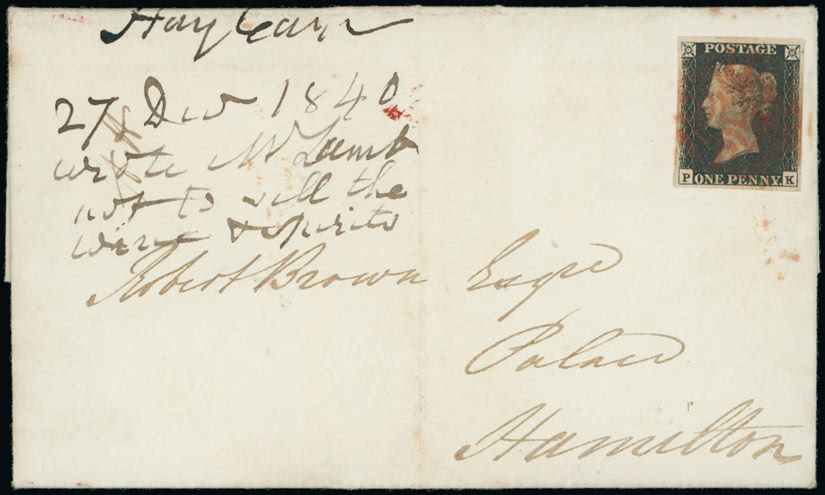 27 Decr 1840
wrote Mr Lamb
not to sell the
wine & spirits
Robert Brown Esqre
Palace
Hamilton
POSTAGE
P ONE PENNY. K